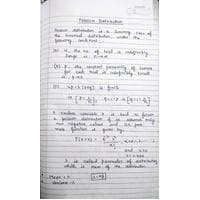 Poisson Distribution
Poisson distribution is a limiting case of
the binomial distribution under the
following conditions :-
(i) n, the no. of trial is indefinitely
large ie n→∞
(ii) P, the constant probability of success
for each trial is indefinitely small
ie p→0
(iii) np = λ (say) is finite
A random variable X is said to follow
a poisson distribution if it assumes only
non negative values and its
mass function is given by
λ is called parameter of distribution
which is mean of the distribution
Mean = λ
Variance = λ